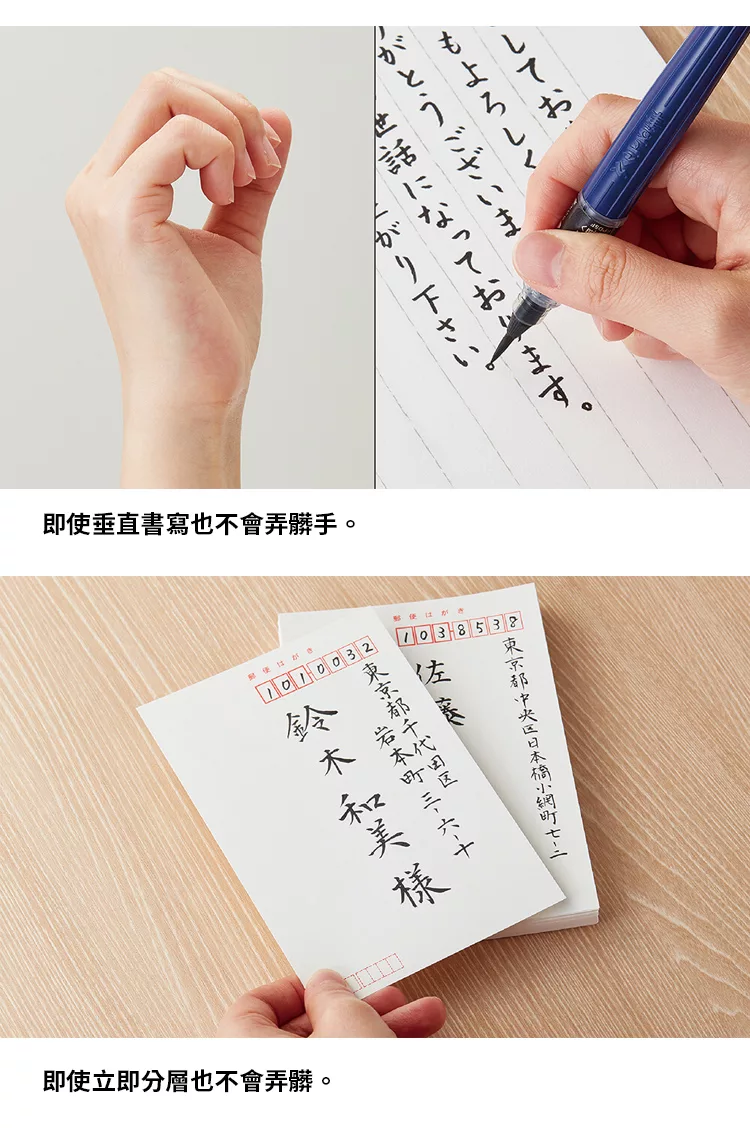 してお
もよろしく
がとうございま
世話になっております。
がり下さい。
即使垂直書寫也不會弄髒手。
郵便はがき
1010032
東京都千代田区
岩本町 三-六-十
鈴木和美様
郵便はがき
1038538
東京都中央区日本橋小網町七-二
佐藤
即使立即分層也不會弄髒。